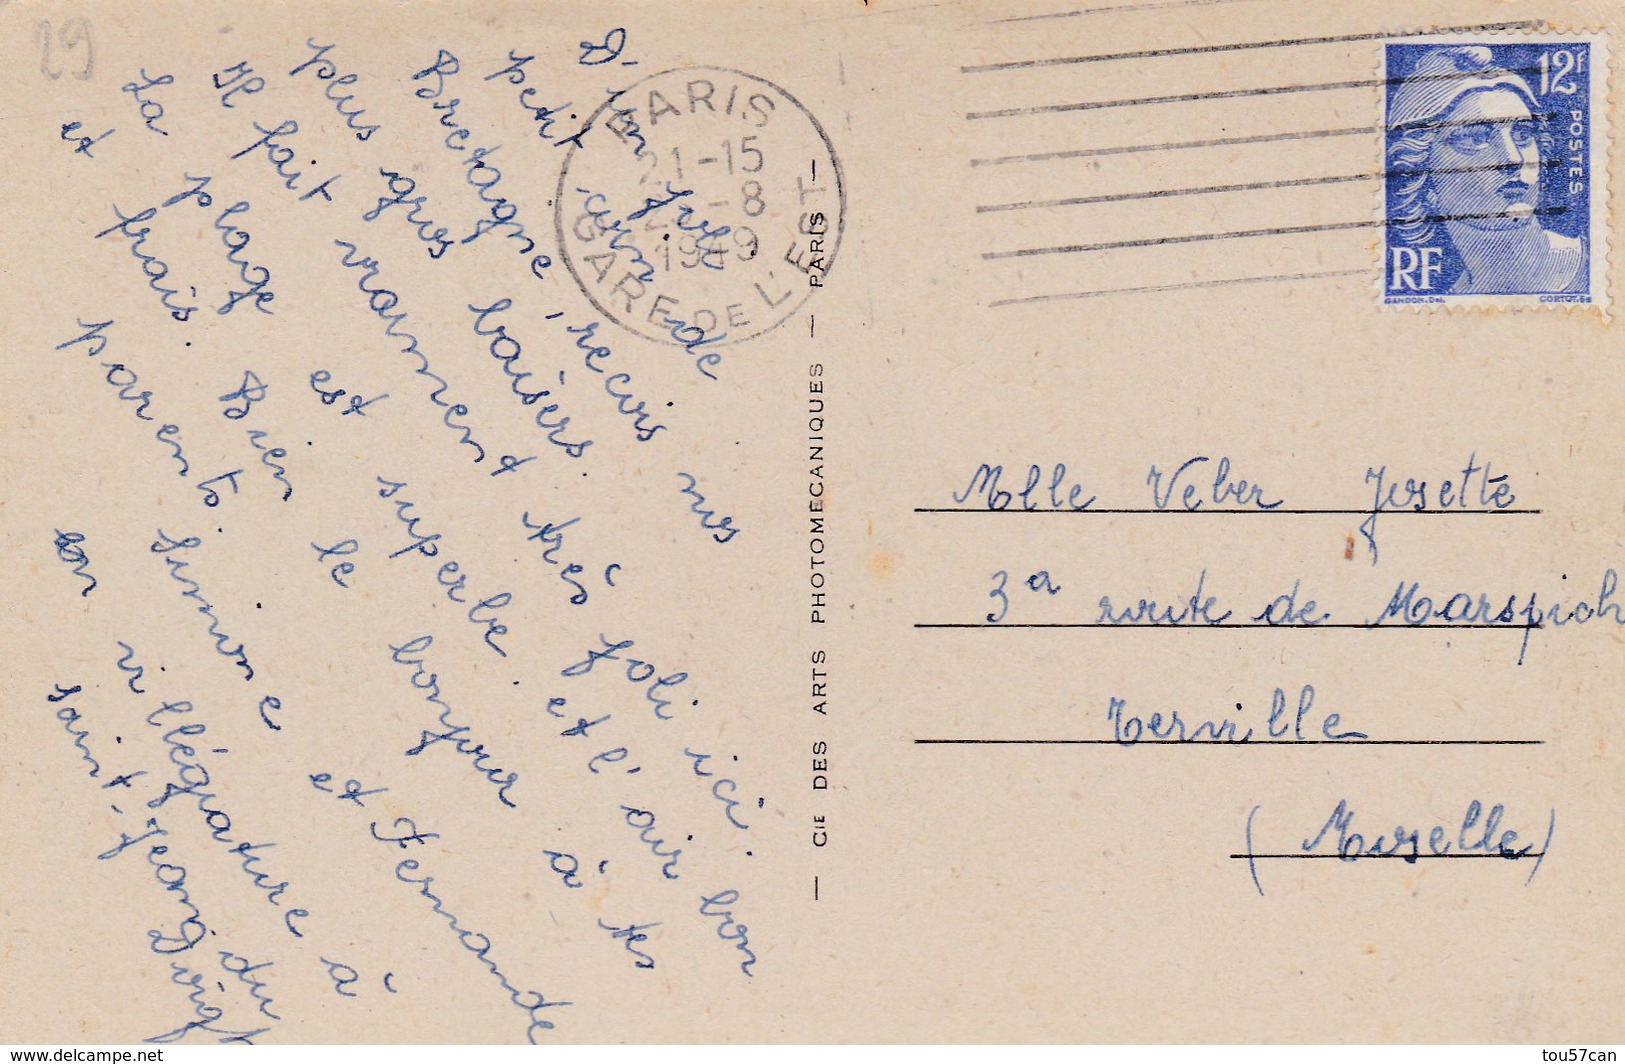 29
D'un joli
petit coin de
Bretagne, recois nos
plus gros baisers.
Il fait vraiment très joli ici.
La plage est superbe. et l'air bon
et frais. Bien le bonjour à tes
parents. Simone et Fernande
en villégiature à
Saint-Jean du Doigt
PARIS
21-15
-8
1949
GARE DE L'EST
— CIE DES ARTS PHOTOMECANIQUES — PARIS —
12F
POSTES
RF
GANDON.Del.
CORTOT.Sc
Melle Veber Josette
3a route de Marspich
Terville
(Moselle)
www.delcampe.net
tou57can